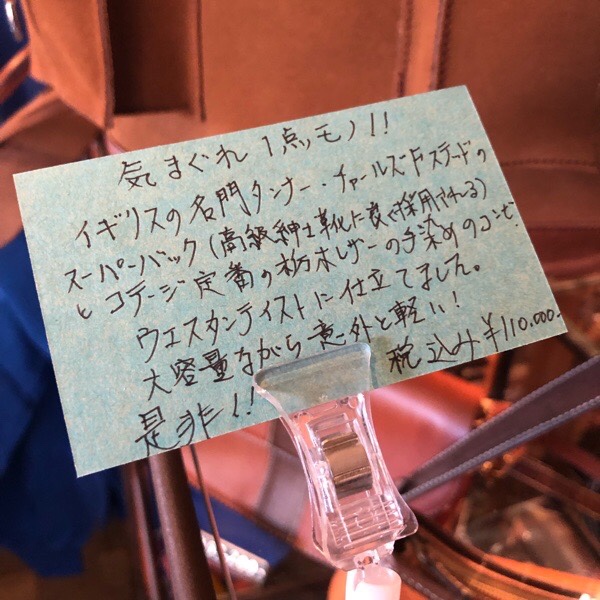 気まぐれ1点モノ!!
イギリスの名門タンナー・チャールズFステードの
スーパーバック(高級紳士靴に良く採用される)
とコテージ定番の栃木レザーの手染めのコンビ。
ウエスタンテイストに仕立てました。
大容量ながら意外と軽い!
是非!! 税込み¥110.000-